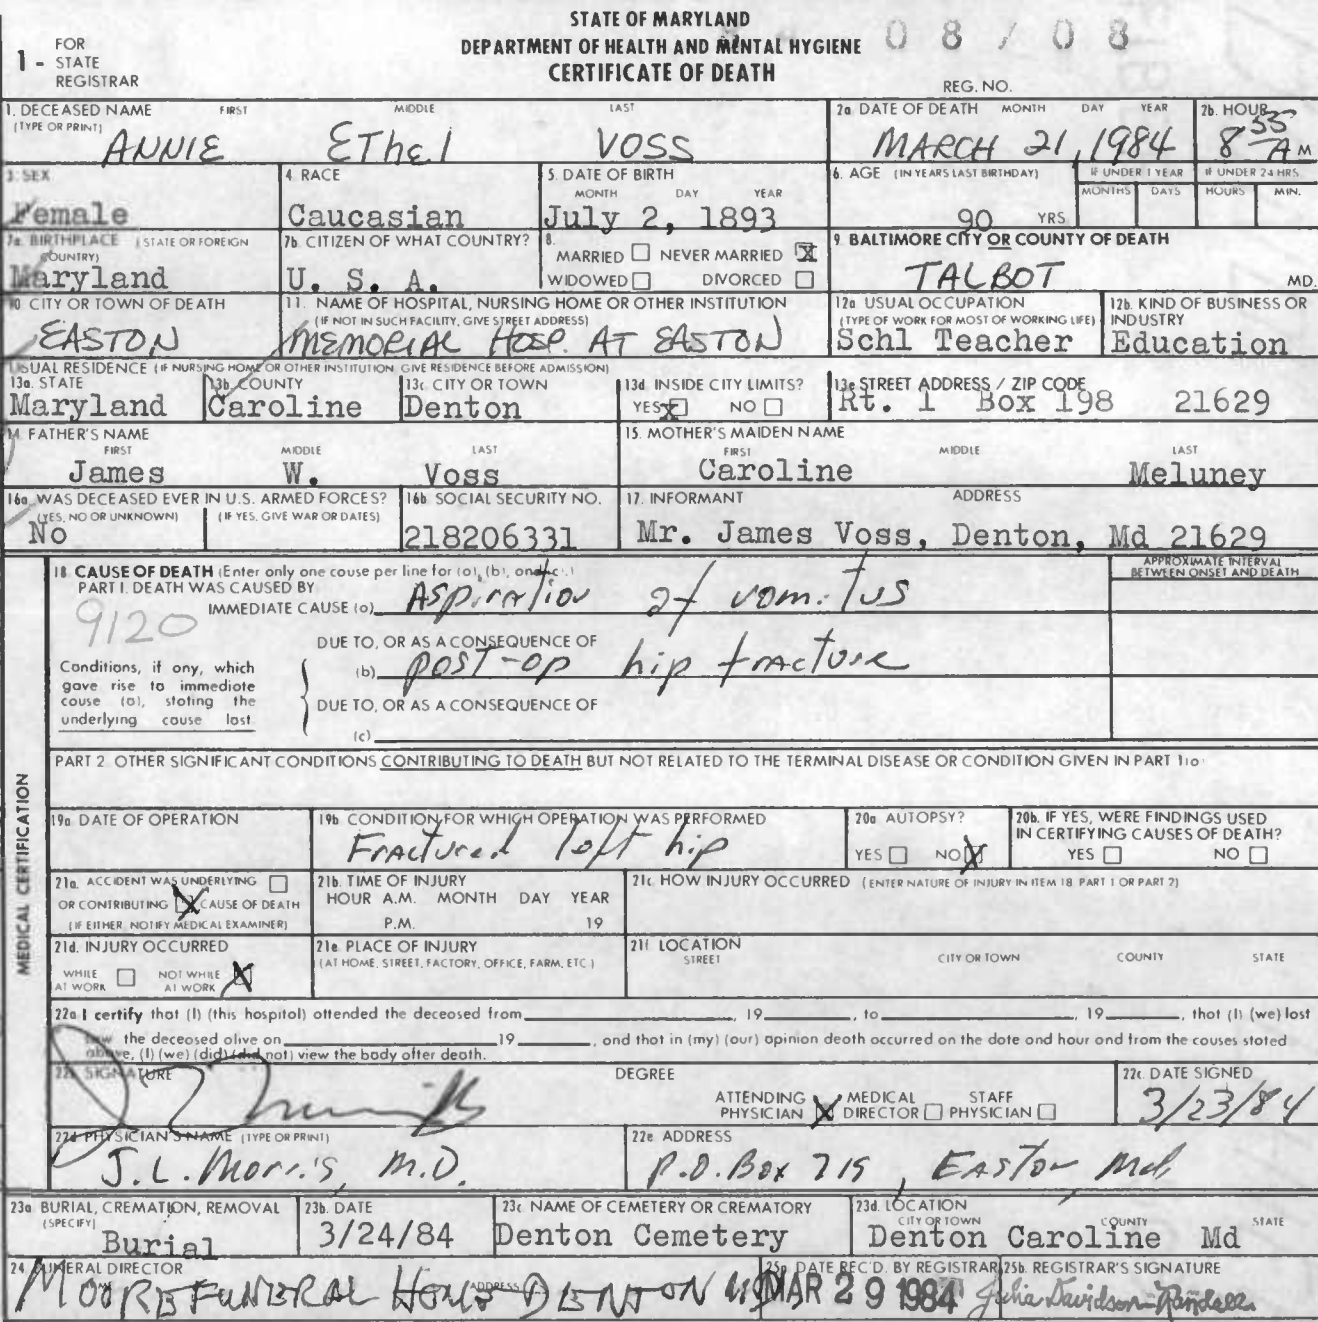 STATE OF MARYLAND
DEPARTMENT OF HEALTH AND MENTAL HYGIENE
CERTIFICATE OF DEATH
08708
1 - FOR STATE REGISTRAR
REG. NO.
1. DECEASED NAME FIRST MIDDLE LAST
(TYPE OR PRINT)
ANNIE EThel VOSS
2a DATE OF DEATH MONTH DAY YEAR
MARCH 21, 1984
2b. HOUR
8 55 A M
3. SEX
Female
4. RACE
Caucasian
5. DATE OF BIRTH
MONTH DAY YEAR
July 2, 1893
6. AGE (IN YEARS LAST BIRTHDAY)
90 YRS
IF UNDER 1 YEAR
MONTHS DAYS
IF UNDER 24 HRS
HOURS MIN.
7a. BIRTHPLACE (STATE OR FOREIGN COUNTRY)
Maryland
7b. CITIZEN OF WHAT COUNTRY?
U. S. A.
8.
MARRIED NEVER MARRIED X
WIDOWED DIVORCED
9. BALTIMORE CITY OR COUNTY OF DEATH
TALBOT MD.
10. CITY OR TOWN OF DEATH
EASTON
11. NAME OF HOSPITAL, NURSING HOME OR OTHER INSTITUTION
(IF NOT IN SUCH FACILITY, GIVE STREET ADDRESS)
MEMORIAL HOSP. AT EASTON
12a USUAL OCCUPATION
(TYPE OF WORK FOR MOST OF WORKING LIFE)
Schl Teacher
12b. KIND OF BUSINESS OR INDUSTRY
Education
USUAL RESIDENCE (IF NURSING HOME OR OTHER INSTITUTION GIVE RESIDENCE BEFORE ADMISSION)
13a. STATE
Maryland
13b. COUNTY
Caroline
13c. CITY OR TOWN
Denton
13d. INSIDE CITY LIMITS?
YES X NO
13e STREET ADDRESS / ZIP CODE
Rt. 1 Box 198 21629
14. FATHER'S NAME
FIRST MIDDLE LAST
James W. Voss
15. MOTHER'S MAIDEN NAME
FIRST MIDDLE LAST
Caroline Meluney
16a. WAS DECEASED EVER IN U.S. ARMED FORCES?
(YES, NO OR UNKNOWN) (IF YES, GIVE WAR OR DATES)
No
16b SOCIAL SECURITY NO.
218206331
17. INFORMANT ADDRESS
Mr. James Voss, Denton, Md 21629
MEDICAL CERTIFICATION
18 CAUSE OF DEATH (Enter only one cause per line for (a), (b), and (c).)
PART I. DEATH WAS CAUSED BY
IMMEDIATE CAUSE (a) Aspiration of vomitus
9120
APPROXIMATE INTERVAL BETWEEN ONSET AND DEATH
DUE TO, OR AS A CONSEQUENCE OF
(b) post-op hip fracture
Conditions, if any, which gave rise to immediate cause (a), stating the underlying cause last
DUE TO, OR AS A CONSEQUENCE OF
(c)
PART 2 OTHER SIGNIFICANT CONDITIONS CONTRIBUTING TO DEATH BUT NOT RELATED TO THE TERMINAL DISEASE OR CONDITION GIVEN IN PART 1(a)
19a DATE OF OPERATION
19b CONDITION FOR WHICH OPERATION WAS PERFORMED
Fractured left hip
20a AUTOPSY?
YES NO X
20b. IF YES, WERE FINDINGS USED IN CERTIFYING CAUSES OF DEATH?
YES NO
21a. ACCIDENT WAS UNDERLYING
OR CONTRIBUTING X CAUSE OF DEATH
(IF EITHER, NOTIFY MEDICAL EXAMINER)
21b. TIME OF INJURY
HOUR A.M. MONTH DAY YEAR
P.M. 19
21c. HOW INJURY OCCURRED (ENTER NATURE OF INJURY IN ITEM 18 PART 1 OR PART 2)
21d. INJURY OCCURRED
WHILE AT WORK NOT WHILE AT WORK X
21e. PLACE OF INJURY
(AT HOME, STREET, FACTORY, OFFICE, FARM, ETC.)
21f LOCATION
STREET CITY OR TOWN COUNTY STATE
22a I certify that (I) (this hospital) attended the deceased from , 19 , to , 19 , that (I) (we) last
saw the deceased alive on 19 , and that in (my) (our) opinion death occurred on the date and hour and from the causes stated
above, (I) (we) (did) (did not) view the body after death.
22b. SIGNATURE
DEGREE
ATTENDING PHYSICIAN X MEDICAL DIRECTOR STAFF PHYSICIAN
22c. DATE SIGNED
3/23/84
22d PHYSICIAN'S NAME (TYPE OR PRINT)
J.L. Morris, M.D.
22e ADDRESS
P.O. Box 719, Easton Md
23a BURIAL, CREMATION, REMOVAL
(SPECIFY)
Burial
23b. DATE
3/24/84
23c NAME OF CEMETERY OR CREMATORY
Denton Cemetery
23d. LOCATION
CITY OR TOWN COUNTY STATE
Denton Caroline Md
24. FUNERAL DIRECTOR
ADDRESS
MOORE FUNERAL HOME DENTON MD
25a DATE REC'D. BY REGISTRAR
MAR 29 1984
25b. REGISTRAR'S SIGNATURE
Julia Davidson-Randall